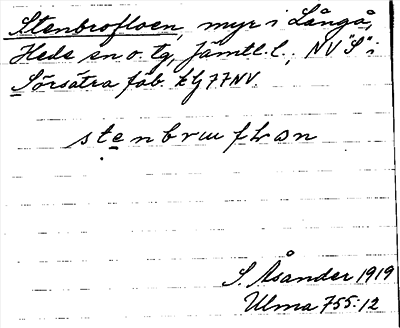 Stenbrofloen, myr i Långå,
Hede sn o. tg, Jämtl. l.; NV "S" i
Sörsätra fäb. kg 77 NV.
stenbrɯ flɔn
S. Åsander 1919
Ulma 755:12